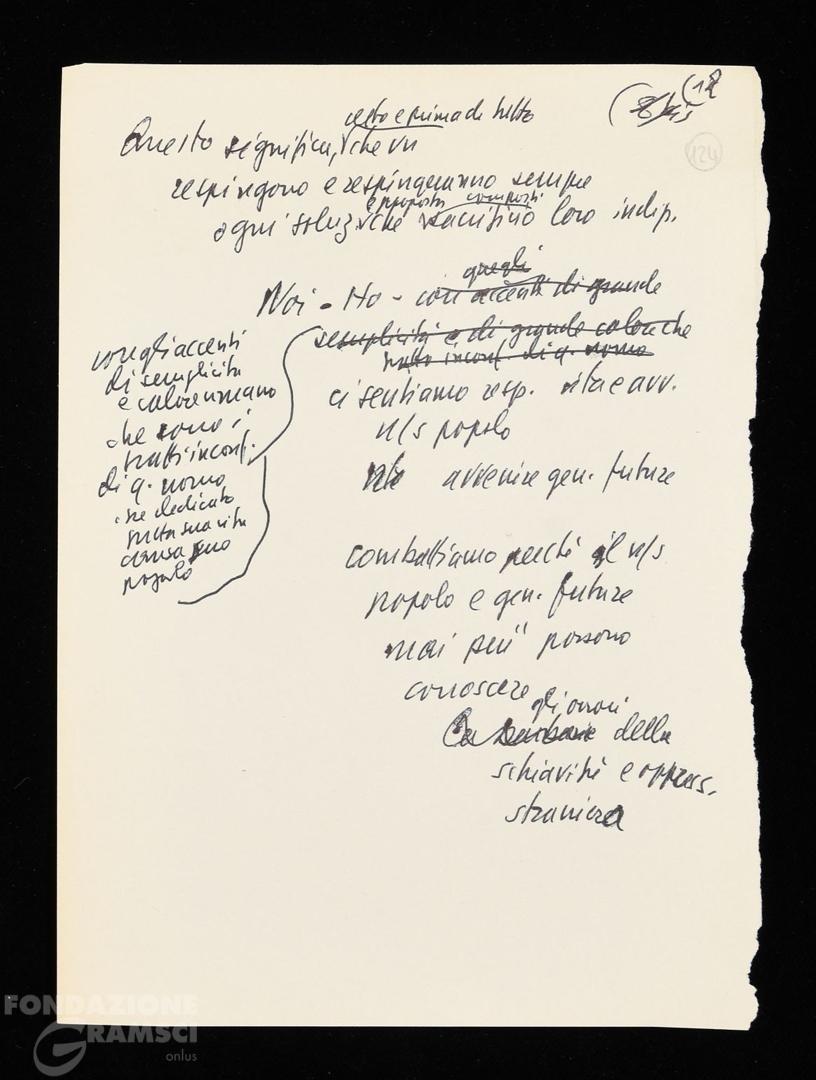 (12
124
certo e prima di tutto
Questo significa, che vn
respingono e respingeranno sempre
e proposta comporti
ogni soluz. che sacrificio loro indip.
quegli
Noi - Ho - con accenti di grande
semplicità e di grande calore che
tratto inconf. di q. uomo
ci sentiamo resp. vita e avv.
n/s popolo
avvenire gen. future
con gli accenti
di semplicità
e calore umano
che sono i
tratti inconf.
di q. uomo
che dedicato
tutta sua vita
causa suo
popolo
combattiamo perché il n/s
popolo e gen. future
mai più possono
conoscere
gli orrori
La barbarie della
schiavitù e oppress.
straniera
FONDAZIONE
GRAMSCI
onlus